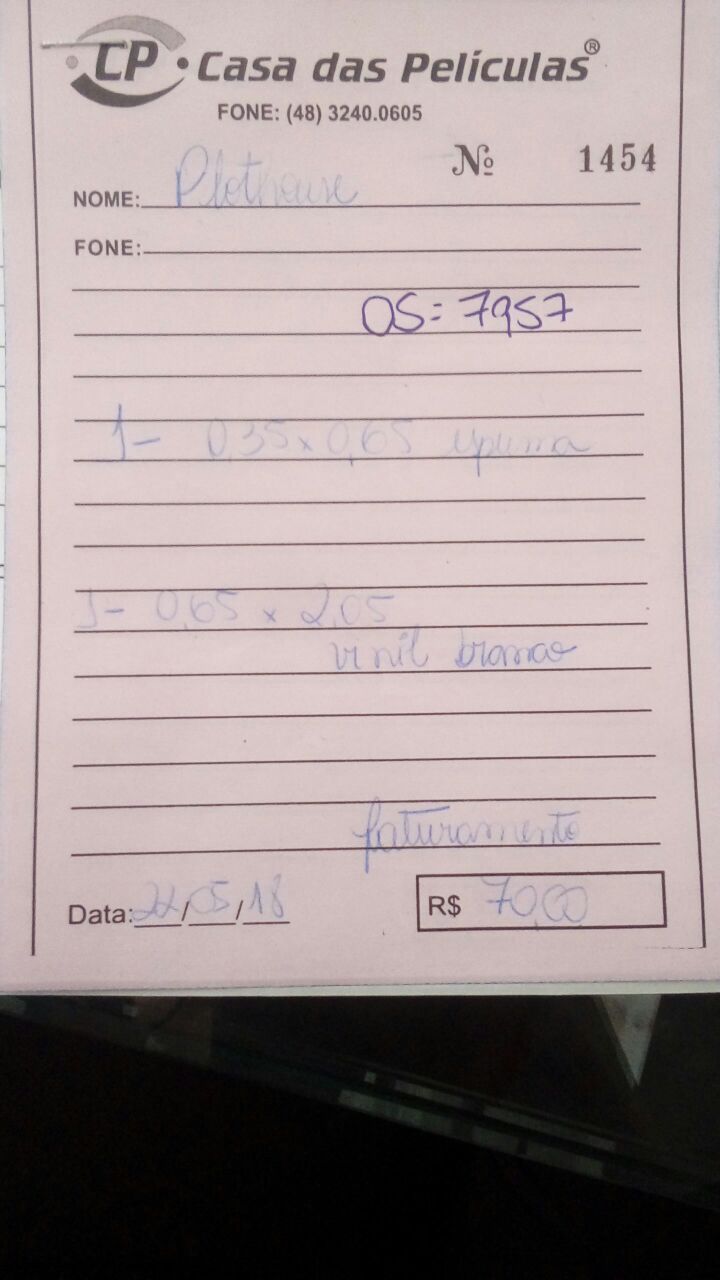 CP • Casa das Películas®
FONE: (48) 3240.0605
Nº 1454
NOME: Plothouse
FONE:
OS: 7957
1- 0,35 x 0,65
1- 0,65 x 2,05
vinil branco
faturamento
Data: 22/05/18 R$ 70,00